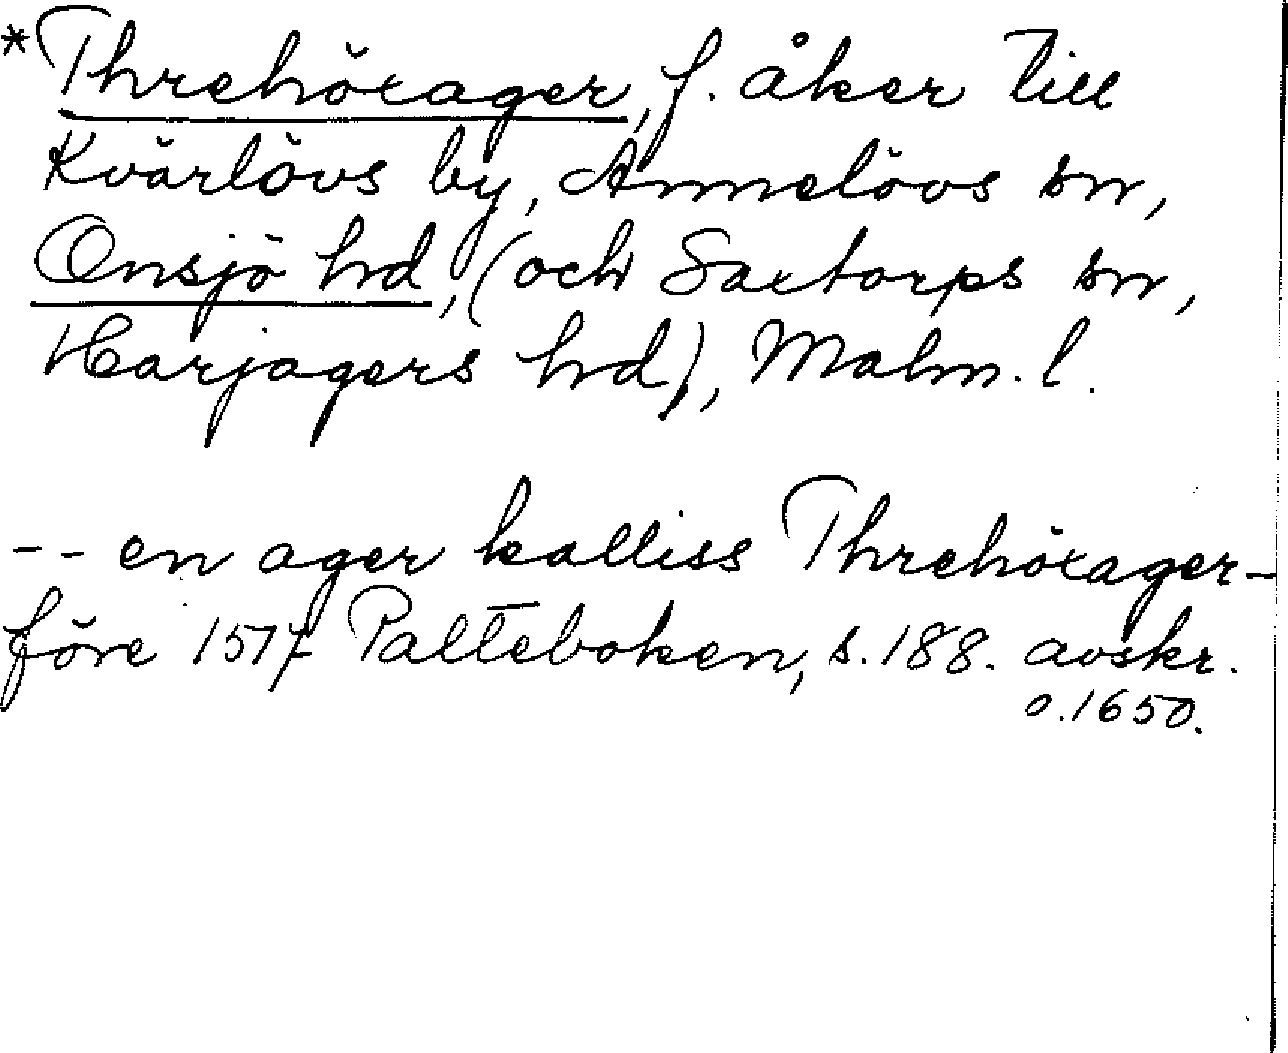 *Threhöxager, f. åker till
Kvärlövs by, Annelövs sn,
Onsjö hd, (och Saxtorps sn,
Harjagers hd), Malm. l.
-- en ager kalliss Threhöxager-
före 1517 Palteboken, s. 188. avskr.
o. 1650.